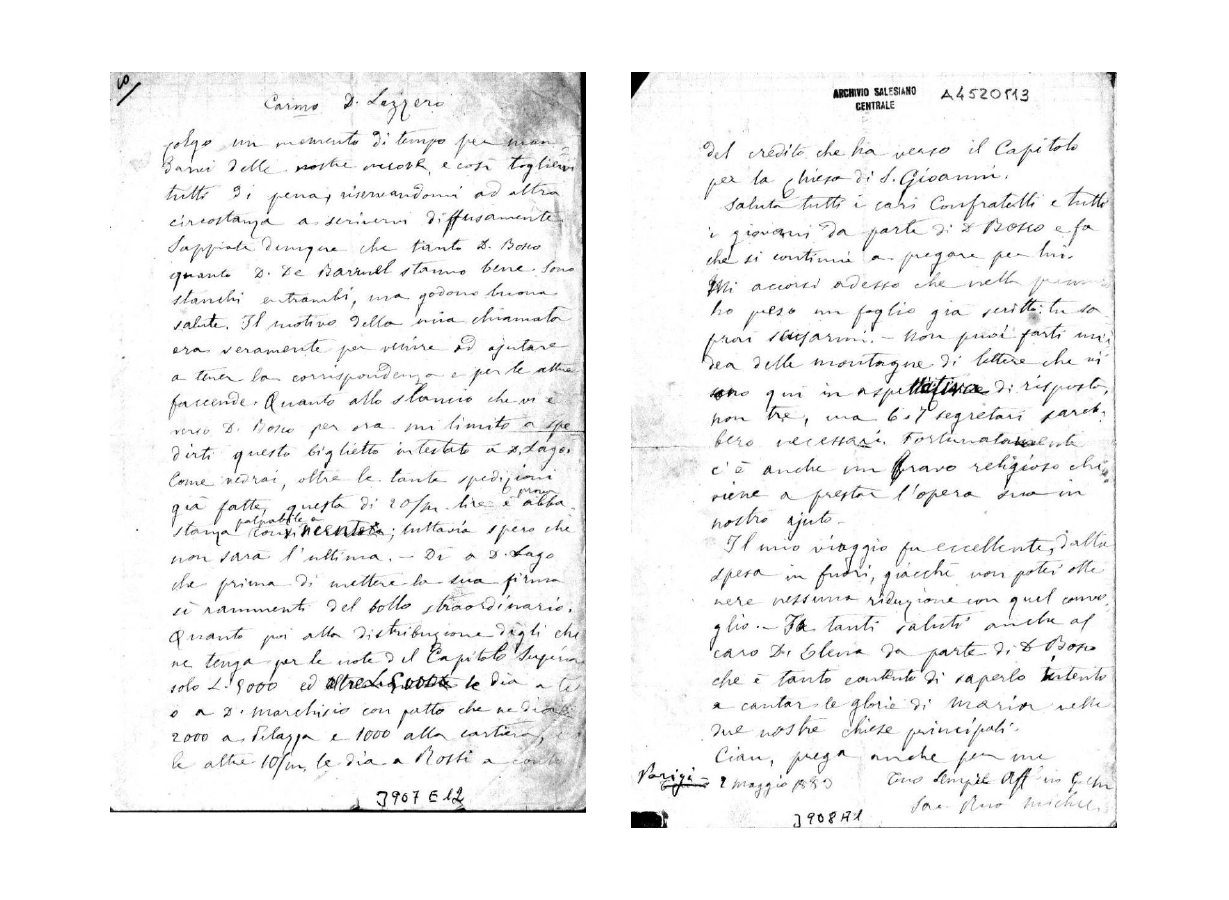 Carmo D. Lazzero
Colgo un momento di tempo per man-
darvi delle nostre nuove, e così togliervi
tutti di pena, riservandomi ad altra
circostanza a scrivervi diffusamente
Sappiate dunque che tanto D. Bosco
quanto D. De Barruel stanno bene. Sono
stanchi entrambi, ma godono buona
salute. Il motivo della mia chiamata
era veramente per venire ad ajutare
a tener la corrispondenza e per le altre
faccende. Quanto allo slancio che vi è
verso D. Bosco per ora mi limito a spe-
dirti questo biglietto intestato a D. Lago.
Come vedrai, oltre le tante spedizioni
già fatte, questa di 20/m lire è prova abba-
stanza palpabile; tuttavia spero che
non sarà l'ultima. - Di' a D. Lago
che prima di mettere la sua firma
si rammenti del bollo straordinario.
Quanto poi alla distribuzione digli che
ne tenga per le note del Capitolo Superio
solo L. 5000 ed le dia a te
o a D. Marchisio con patto che ne dia
2000 a Pelazza e 1000 alla cartiera,
le altre 10/m le dia a Rossi a conto
J907 E12
ARCHIVIO SALESIANO
CENTRALE
A4520113
del credito che ha verso il Capitolo
per la Chiesa di S. Gioanni.
Saluta tutti i cari Confratelli e tutti
i giovani da parte di D Bosco e fa
che si continui a pregare per lui.
Mi accorsi adesso che nella
ho preso un foglio già scritto: tu sa
prai scusarmi. - Non puoi farti un'i
dea delle montagne di lettere che vi
sono qui in aspettativa di risposta,
non tre, ma 6 o 7 segretari sareb-
bero necessari. Fortunatamente
c'è anche un bravo religioso che
viene a prestar l'opera sua in
nostro ajuto.
Il mio viaggio fu eccellente, dalla
spesa in fuori, giacchè non potei otte
nere nessuna riduzione con quel convo-
glio. - Fa tanti saluti anche al
caro D. Elena da parte di D Bosco
che è tanto contento di saperlo intento
a cantar le glorie di Maria nelle
due nostre chiese principali.
Ciau, prega anche per me
Parigi 2 maggio 1883
Tuo sempre Aff in G.
Sac. Rua Michele
J908A1